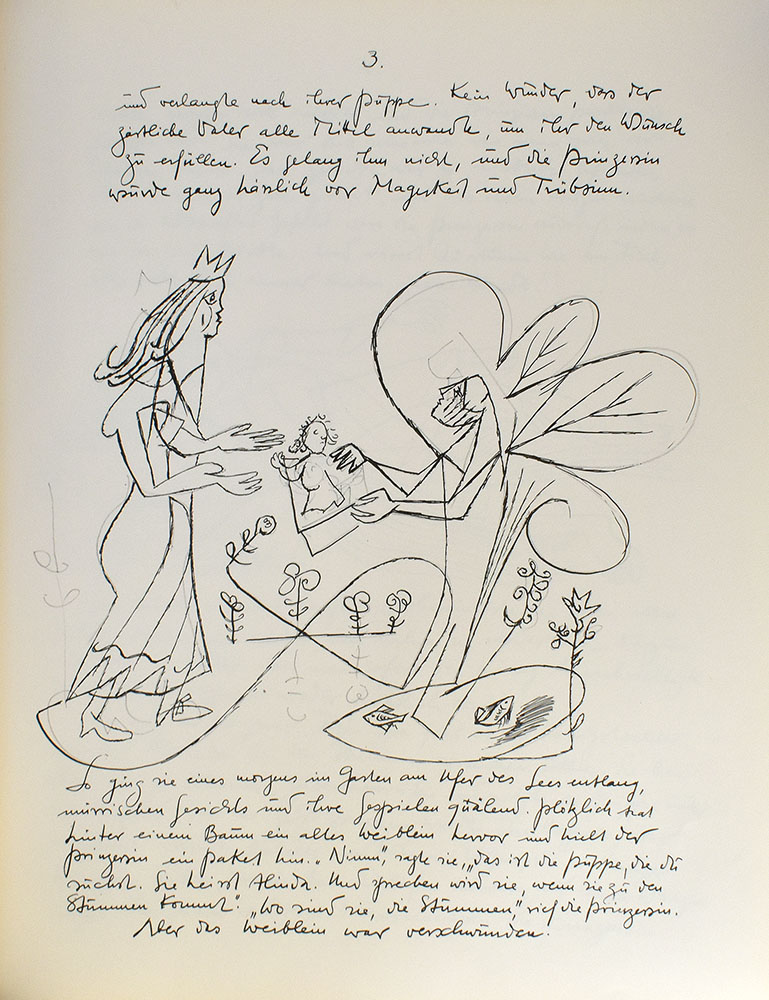 3.
und verlangte nach ihrer Puppe. Kein Wunder, dass der
zärtliche Vater alle Mittel anwandte, um ihr den Wunsch
zu erfüllen. Es gelang ihm nicht, und die Prinzessin
wurde ganz hässlich vor Magerkeit und Trübsinn.
So ging sie eines morgens im Garten am Ufer des Sees entlang,
mürrischen Gesichts und ihre Gespielen quälend. Plötzlich trat
hinter einem Baum ein altes Weiblein hervor und hielt der
Prinzessin ein Paket hin. „Nimm", sagte sie, „das ist die Puppe, die du
suchst. Sie heisst Alinda. Und sprechen wird sie, wenn sie zu den
Stummen kommt". „Wo sind sie, die Stummen," rief die Prinzessin.
Aber das Weiblein war verschwunden.